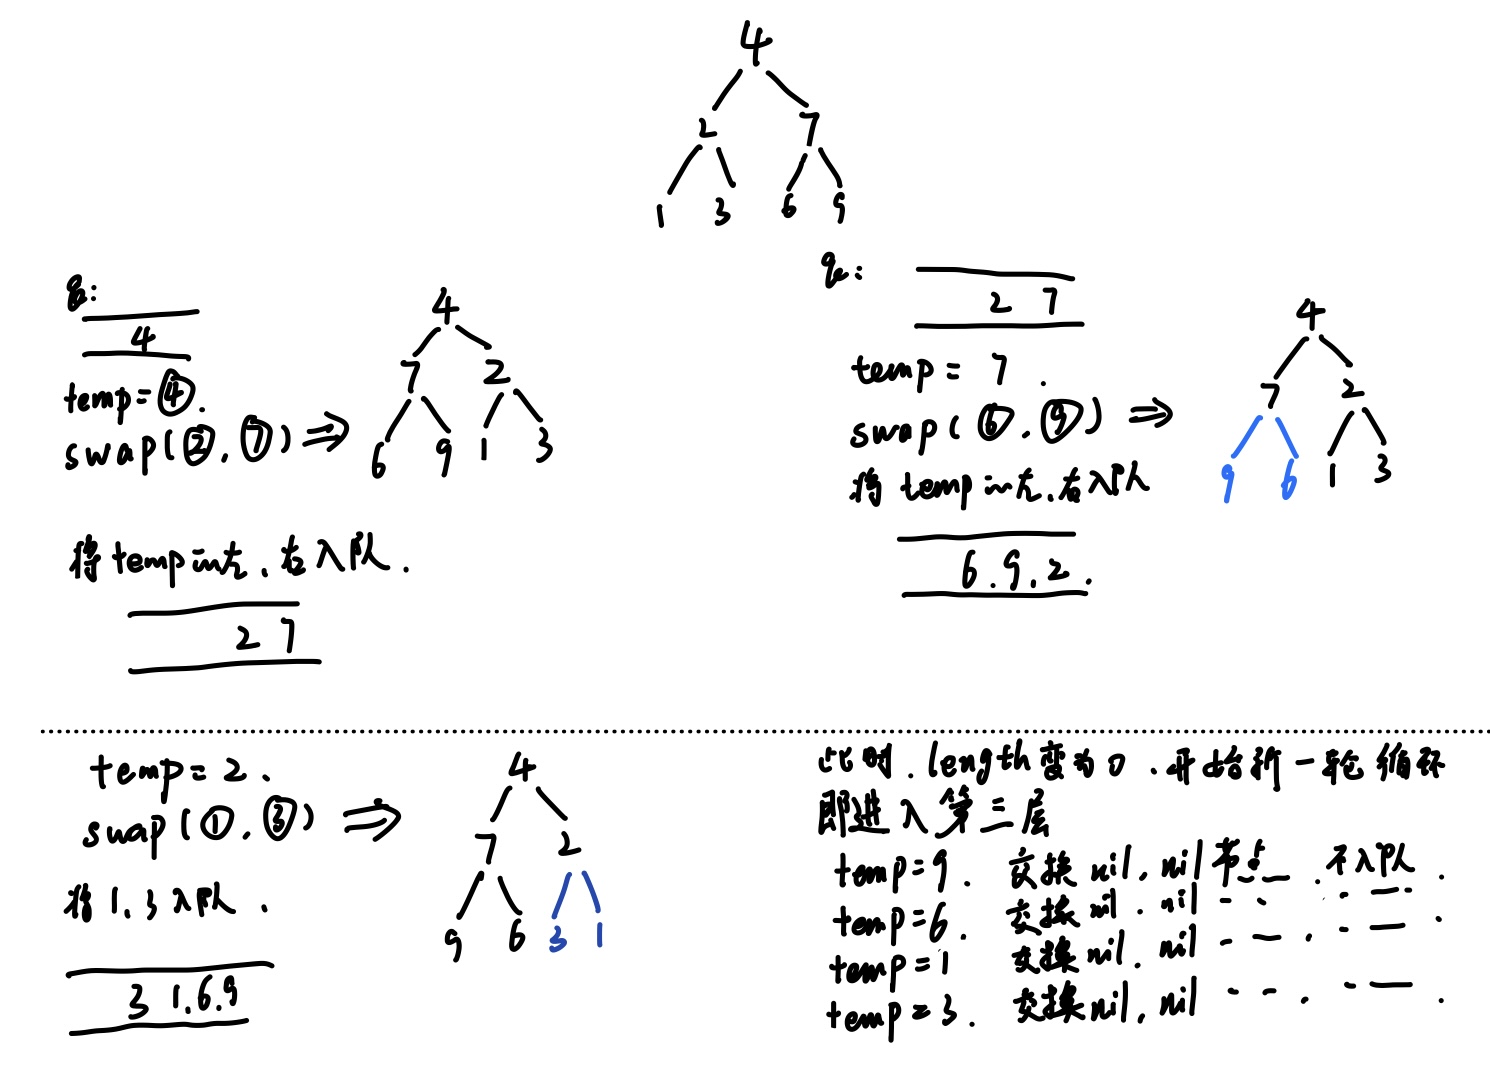 4
2 7
1 3 6 9
q:
4
temp=④.
swap(②,⑦) ⇒
4
7 2
6 9 1 3
将temp的左、右入队.
2 7
q:
2 7
temp= 7.
swap(⑥,⑨) ⇒
4
7 2
9 6 1 3
将temp的左、右入队
6.9.2.
temp=2.
swap(①,③) ⇒
将1、3入队.
4
7 2
9 6 3 1
3 1.6.9
此时.length变为0.开始新一轮循环
即进入第三层
temp=9. 交换nil,nil节点.不入队.
temp=6. 交换nil.nil
temp=1 交换nil.nil
temp=3. 交换nil,nil